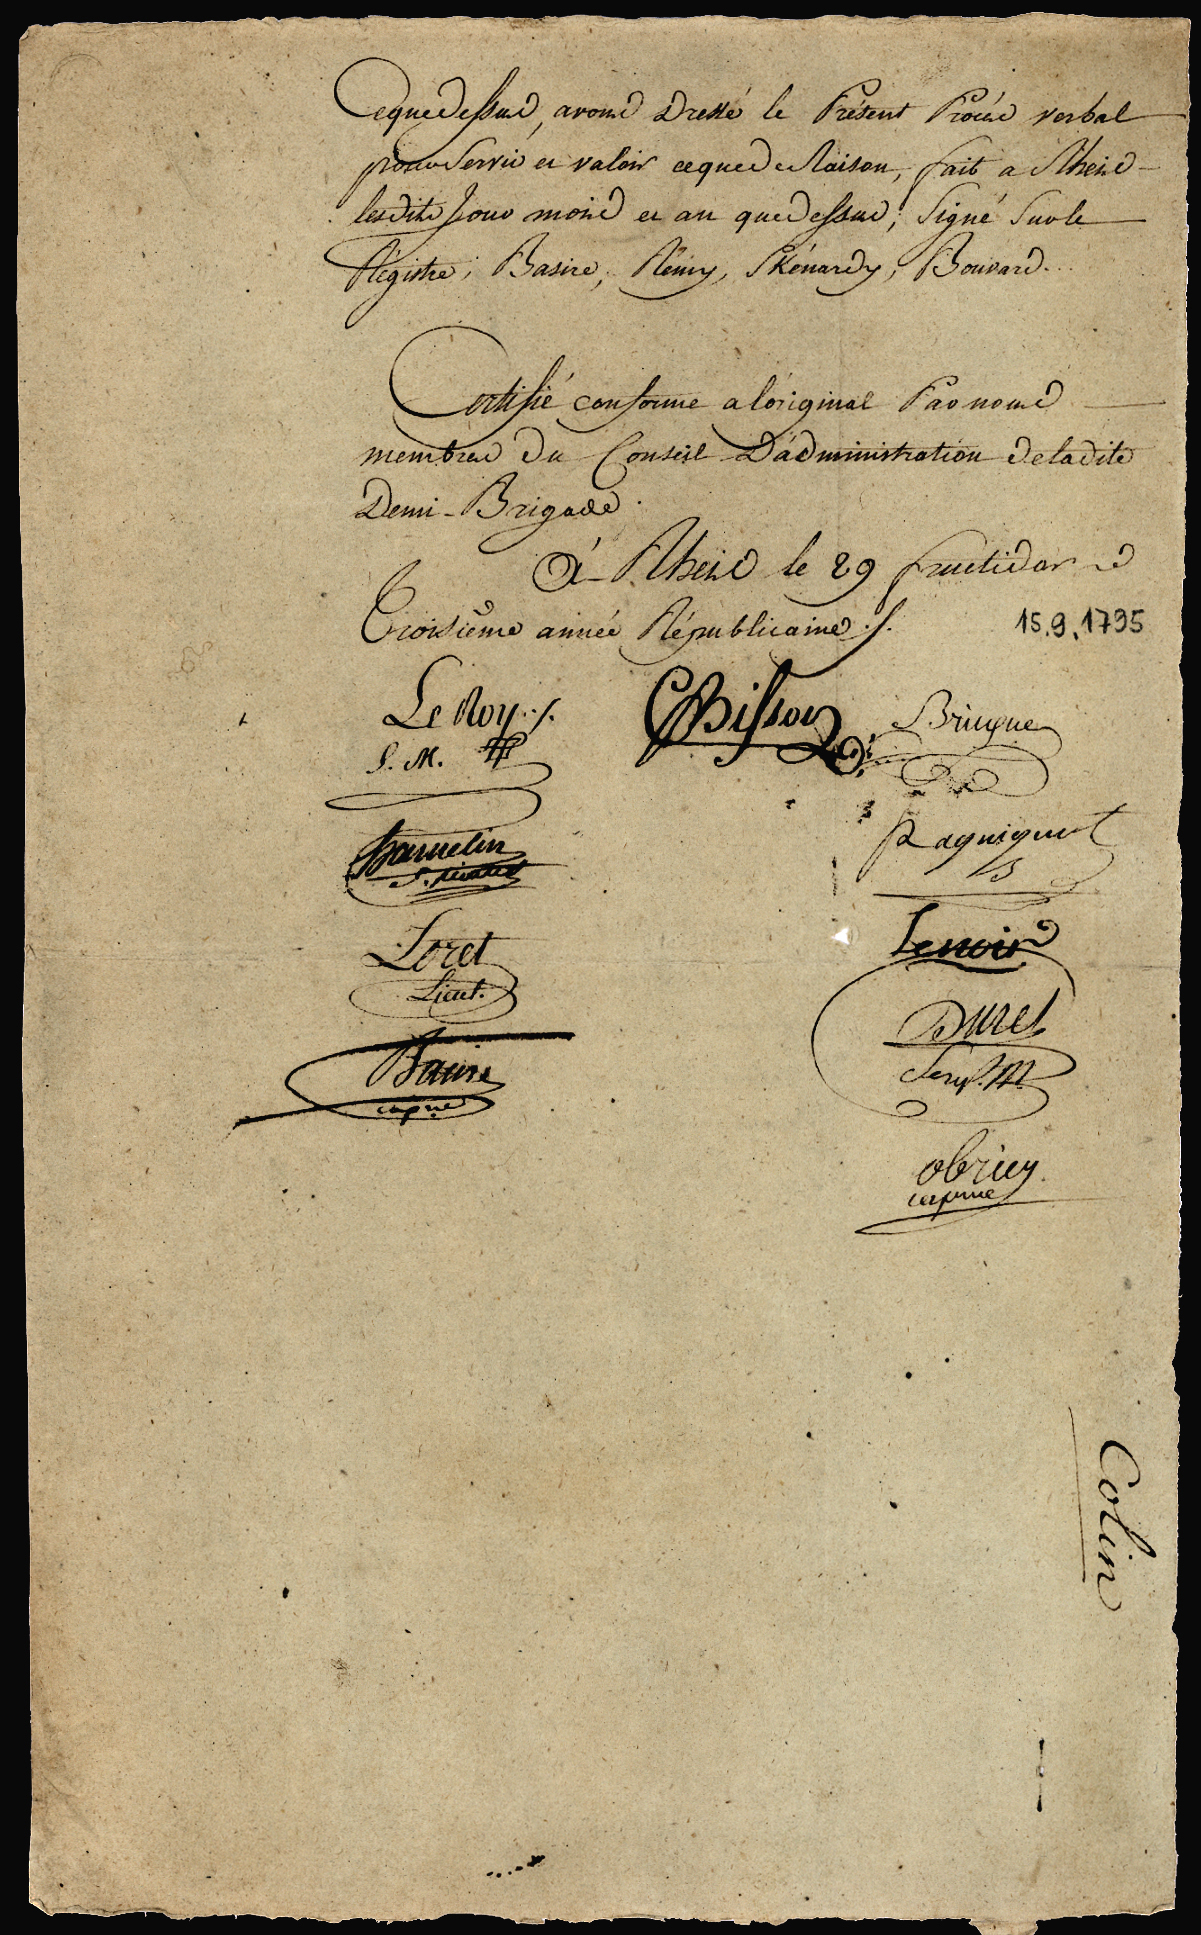 Cequedessus, avons Dressé le Présent Procès verbal
pour Servir et valoir ceque de Raison, fait a Rheims
lesdits Jour mois et an quedessus, Signé Surle
Régistre; Basire, Rémy, Skénardy, Bouvard...
Certifié conforme a lóriginal Par nous
membres du Conseil D'ádministration deladite
Demi-Brigade.
A Rheims le 29 fructidor
Troisième année Républicaine ./.
15.9.1795
Le Roy ./.
S. M.
Bisson
Brieque
Hamelin
Loret
Lieut.
Lenoir
Duret
Serg. M.
Basire
capne
obricy
capne
Colin